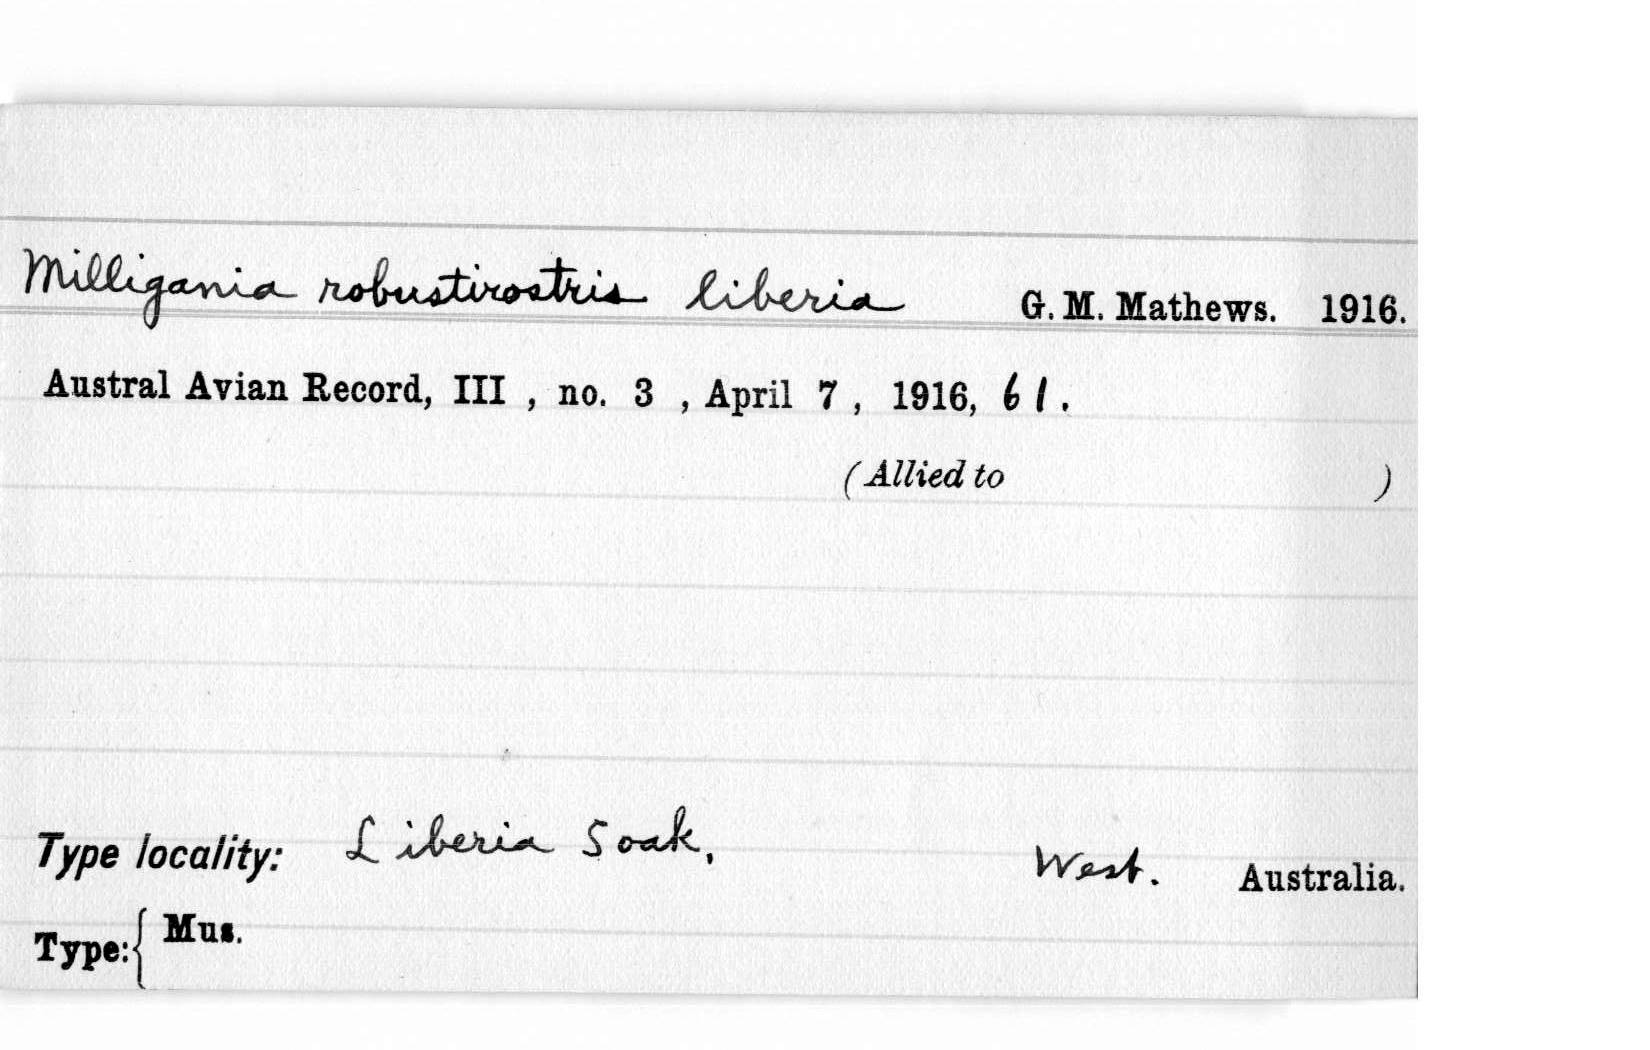 Milligania robustirostris liberia G. M. Mathews. 1916.
Austral Avian Record, III , no. 3 , April 7 , 1916, 61.
(Allied to )
Type locality: Liberia Soak, West. Australia.
Type: { Mus.